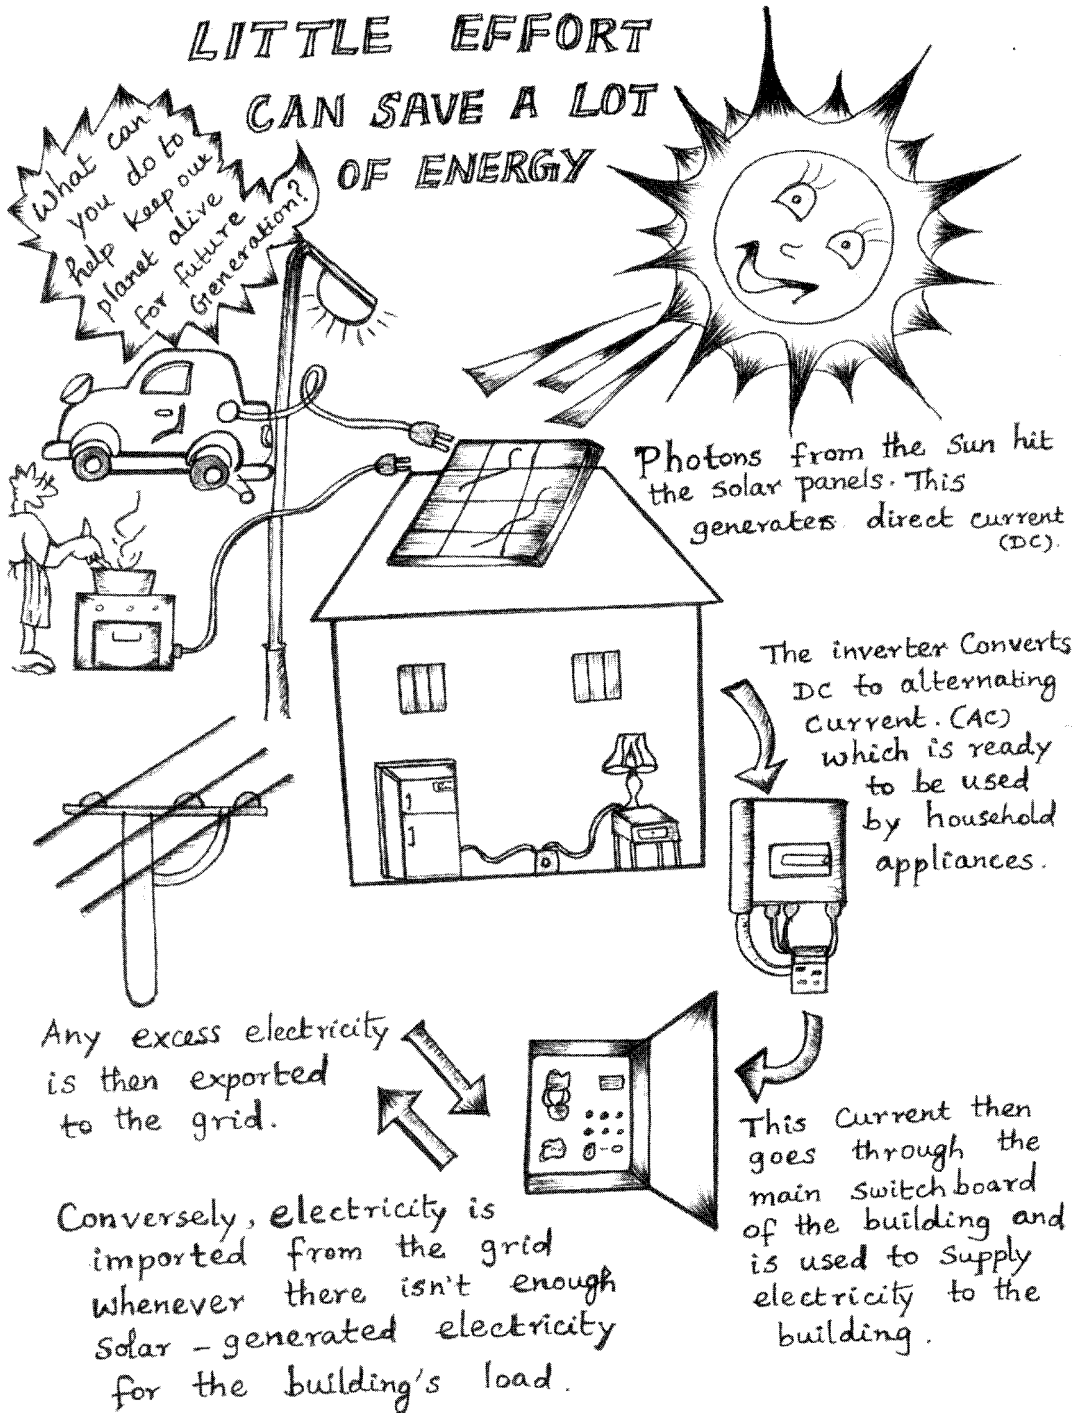 LITTLE EFFORT
CAN SAVE A LOT
OF ENERGY
What can
you do to
help keep our
planet alive
for future
Generation?
Photons from the Sun hit
the solar panels. This
generates direct current
(DC).
The inverter Converts
DC to alternating
Current. (AC)
which is ready
to be used
by household
appliances.
This Current then
goes through the
main Switchboard
of the building and
is used to Supply
electricity to the
building.
Any excess electricity
is then exported
to the grid.
Conversely, electricity is
imported from the grid
whenever there isn't enough
Solar - generated electricity
for the building's load.